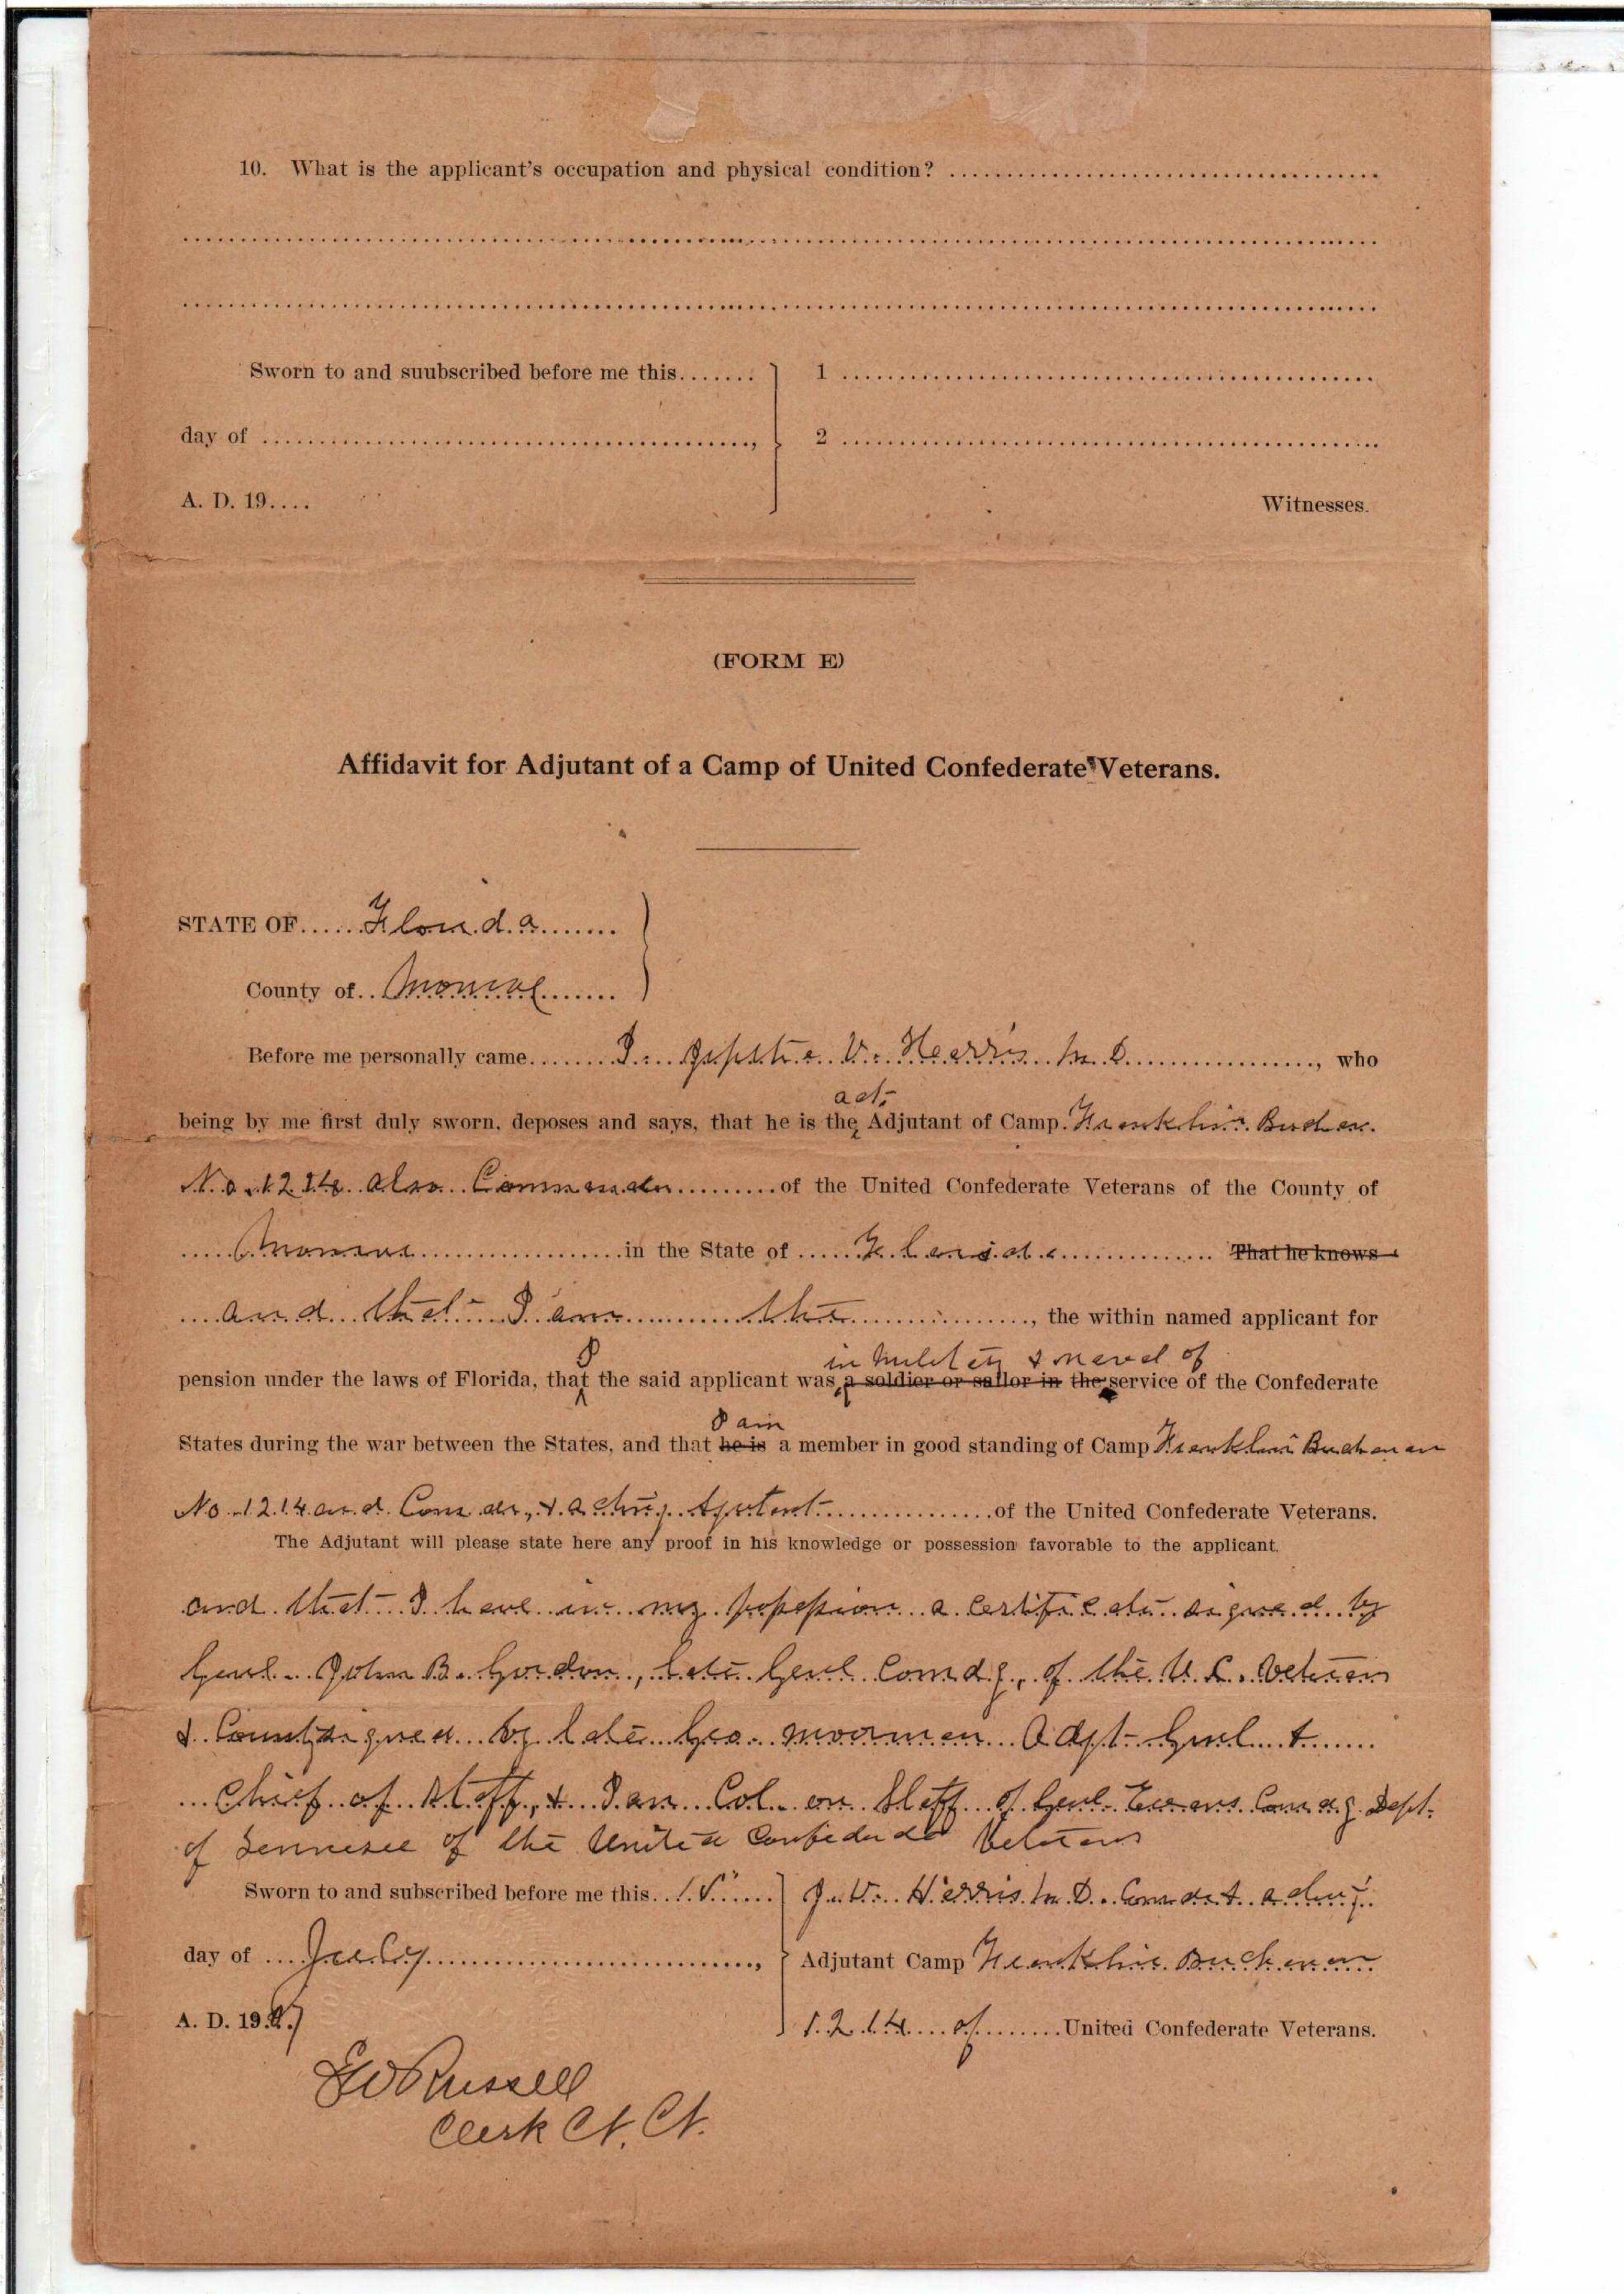 10. What is the applicant's occupation and physical condition?
Sworn to and suubscribed before me this
1
day of
2
A. D. 19
Witnesses.
(FORM E)
Affidavit for Adjutant of a Camp of United Confederate Veterans.
STATE OF Florida
County of Monroe
Before me personally came I. Jeptha V. Harris M D, who
act.
being by me first duly sworn, deposes and says, that he is the Adjutant of Camp Franklin Buchan
No. 1214 also Commander of the United Confederate Veterans of the County of
Monroe in the State of Florida That he knows
and that I am the, the within named applicant for
I in military & naval of
pension under the laws of Florida, that the said applicant was a soldier or sailor in the service of the Confederate
I am
States during the war between the States, and that he is a member in good standing of Camp Franklin Buchanan
No. 1214 and Comdr, & acting Ajutant of the United Confederate Veterans.
The Adjutant will please state here any proof in his knowledge or possession favorable to the applicant.
and that I have in my possession a certificate signed by
Genl. John B. Gordon, late Genl Comdg, of the U. C. Veteran
& Countersigned by late Geo. Moorman Adjt. Genl &
Chief of Staff, & I am Col. on Staff of Genl. Evans Comdg Dept.
of Tennesee of the United Confederate Veterans
Sworn to and subscribed before me this 15" J. V. Harris M. D. Comdr & acting
day of July, Adjutant Camp Franklin Buchanan
A. D. 1907 1214 of United Confederate Veterans.
EW Russell
Clerk Ct. Ct.